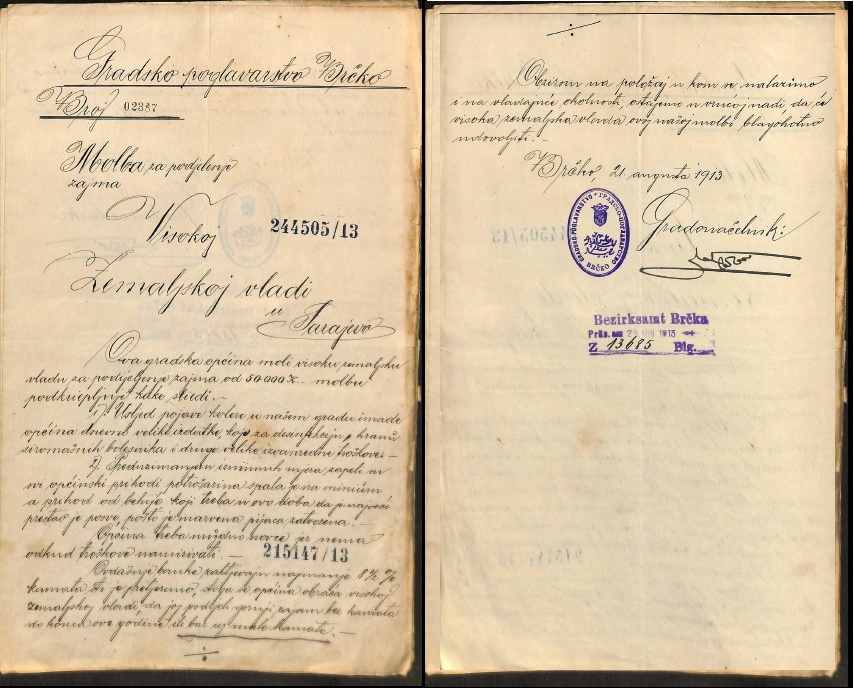 Gradsko poglavarstvo Brčko
Broj 02387
Molba za podjeljenje
zajma
Visokoj
244505/13
Zemaljskoj vladi
u
Sarajevo
Ova gradska općina moli visoku zemaljsku
vladu za podijeljenje zajma od 50.000 K. molbu
podkriepljuje kako sliedi. —
1) Usljed pojave kolere u našem gradu imade
općina dnevno velike izdatke, koje za desinfekciju, hranu
siromašnih bolesnika i druge velike izvanredne troškove. —
2) Preduzimanjem mjera zapeli su
svi općinski prihodi potrošarina spala je na minimum
a prihod od koji treba u ovo doba da je najveći
prestao je posve, pošto je marvena pijaca zatvorena. —
Općina treba nuždno novce jer nema
odkud troškove namirivati. —
215147/13
Ovdašnje banke zahtjevaju najmanje 8½ %
kamata što je pretjerano, stoga se općina obraća visokoj
zemaljskoj vladi, da joj podjeli gornji zajam bez kamata
do konca ove godine ili bar uz male kamate. —
Obzirom na položaj u kom se nalazimo
i na vladajuće okolnosti, ostajemo u nadi, da će
visoka zemaljska vlada ovoj našoj molbi blagohotno
udovoljiti. —
Brčko, 21 augusta 1913
Gradonačelnik:
GRADSKO POGLAVARSTVO * ГРАДСКО ПОГЛАВАРСТВО
BRČKO
Bezirksamt Brčka
Präs. am 25 1913
Z 13685 Blg.